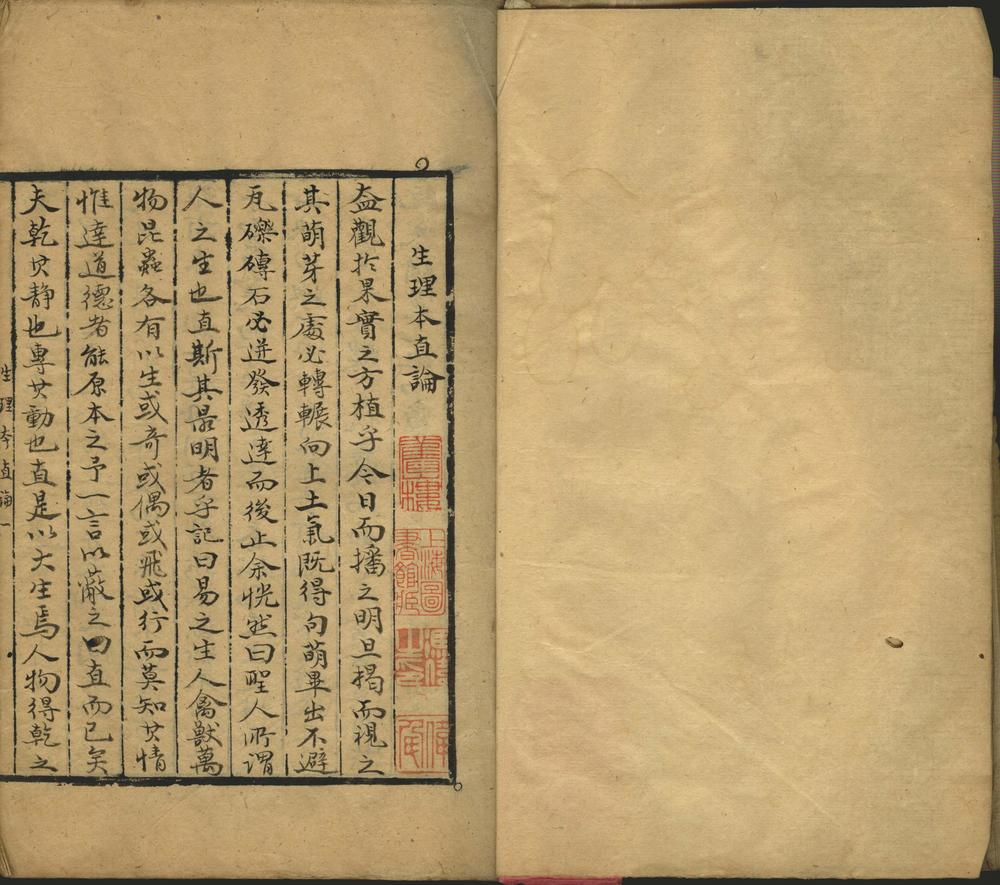 生理本直論
蓋觀於果實之方植乎今日而播之明旦揭而視之
其萌芽之處必轉輾向上土氣既得句萌畢出不避
瓦礫磚石必迸發透達而後止余恍然曰聖人所謂
人之生也直斯其最明者乎記曰易之生人禽獸萬
物昆蟲各有以生或奇或偶或飛或行而莫知其情
惟達道德者能原本之予一言以蔽之曰直而已矣
夫乾其静也專其動也直是以大生焉人物得乾之
生理本直論一
上海圖書館藏